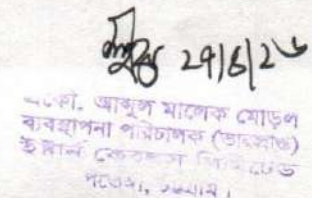 ২৭/৪/২৬
প্রকৌ. আব্দুল মালেক মোড়ল
ব্যবস্থাপনা পরিচালক (ভারপ্রাপ্ত)
ইস্টার্ন কেবলস লিমিটেড
পতেঙ্গা, চট্টগ্রাম।